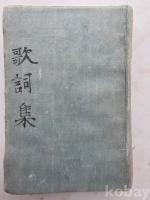 歌詞集
kobay